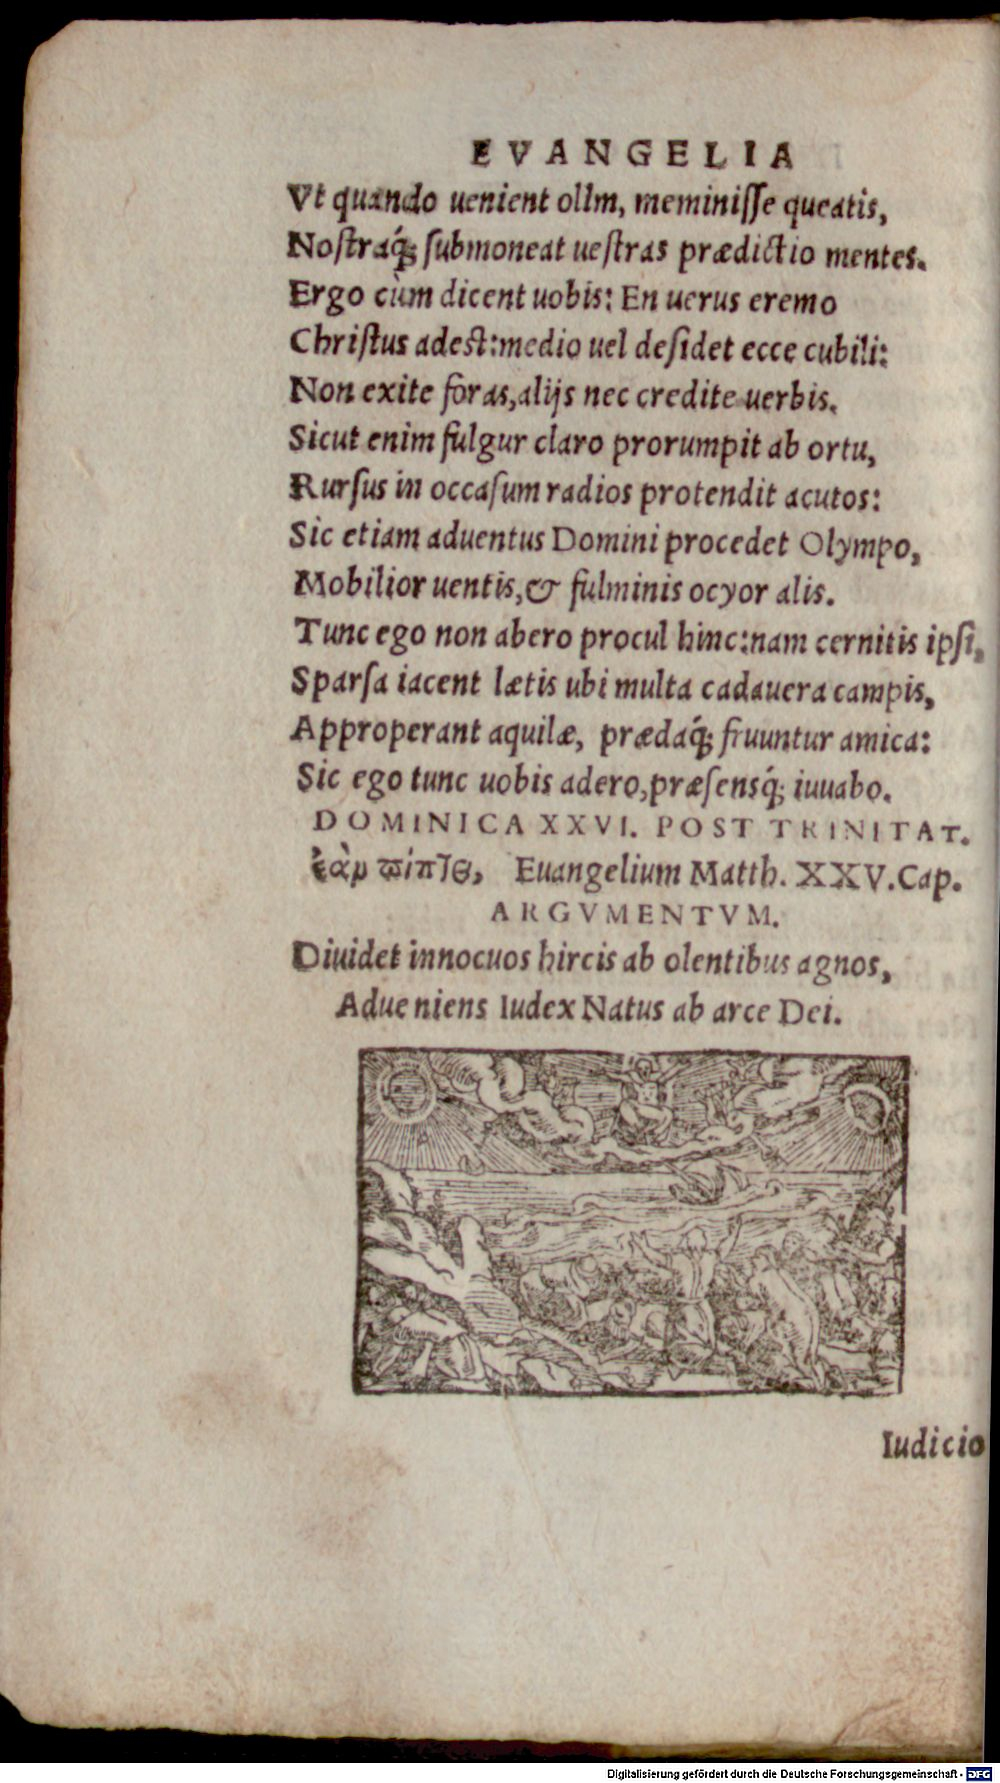 EVANGELIA
Vt quando uenient ollm, meminiſſe queatis,
Noſtraq́; ſubmoneat ueſtras prædictio mentes.
Ergo cùm dicent uobis: En uerus eremo
Chriſtus adest:medio uel deſidet ecce cubili:
Non exite foras,alijs nec credite uerbis.
Sicut enim fulgur claro prorumpit ab ortu,
Rurſus in occaſum radios protendit acutos:
Sic etiam aduentus Domini procedet Olympo,
Mobilior uentis,& fulminis ocyor alis.
Tunc ego non abero procul hinc:nam cernitis ipſi,
Sparſa iacent lætis ubi multa cadauera campis,
Approperant aquilæ, prædaq́; fruuntur amica:
Sic ego tunc uobis adero,præſensq́; iuuabo.
DOMINICA XXVI. POST TRINITAT.
ἐὰμ ϖίπ]ῃ, Euangelium Matth. XXV.Cap.
ARGVMENTVM.
Diuidet innocuos hircis ab olentibus agnos,
Adueniens Iudex Natus ab arce Dei.
Iudicio
Digitalisierung gefördert durch die Deutsche Forschungsgemeinschaft - DFG